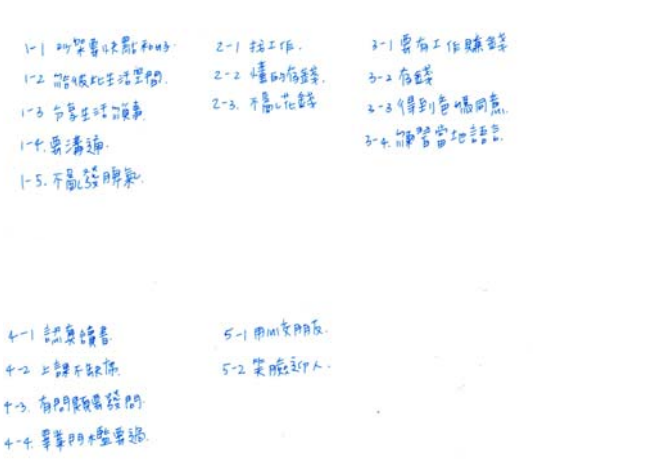 1-1 吵架要快點和好.
1-2 給彼此生活空間.
1-3 分享生活瑣事.
1-4. 要溝通.
1-5. 不亂發脾氣.
2-1 找工作.
2-2 懂的存錢.
2-3. 不亂花錢
3-1 要有工作賺錢
3-2 存錢
3-3 得到爸媽同意.
3-4. 練習當地語言.
4-1 認真讀書
4-2 上課不缺席.
4-3. 有問題要發問.
4-4. 畢業門檻要過.
5-1 用心交朋友.
5-2 笑臉迎人.